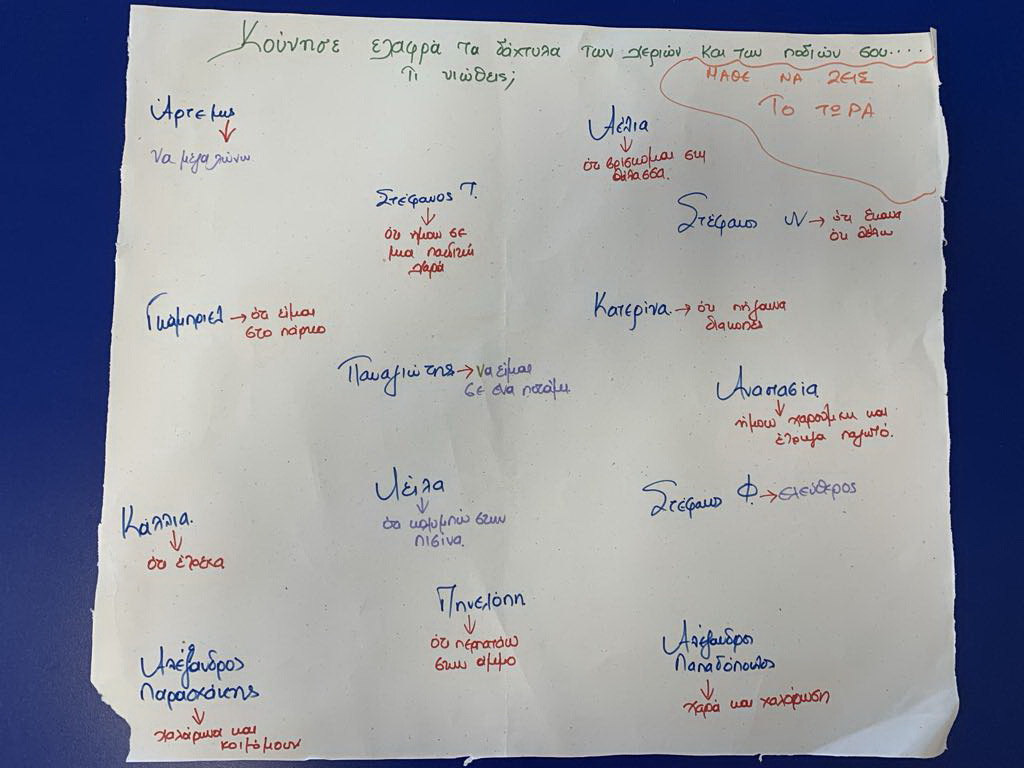 Κούνησε ελαφρά τα δάχτυλα των χεριών και των ποδιών σου....
Τι νιώθεις;
ΜΑΘΕ ΝΑ ΖΕΙΣ
ΤΟ ΤΩΡΑ
Άρτεμις
Να μεγαλώνω.
Λέλια
ότι βρίσκομαι στη
θάλασσα.
Στέφανος Τ.
ότι ήμουν σε
μια παιδική
χαρά
Στέφανος Ν → ότι έκανα
ότι θέλω
Γκαμπριελ → ότι είμαι
στο πάρκο
Κατερίνα → ότι πήγαινα
διακοπές
Παναγιώτης → να είμαι
σε ένα ποτάμι
Αναστασία
ήμουν χαρούμενη και
έτρωγα παγωτό.
Λέιλα
ότι κολυμπώ στην
πισίνα.
Στέφανος Φ. → ελεύθερος
Κάλλια.
ότι έτρεχα
Πηνελόπη
ότι περπατάω
στην άμμο
Αλέξανδρος
Παρασχάκης
χαλάρωνα και
κοιμόμουν
Αλέξανδρος
Παπαδόπουλος
χαρά και χαλάρωση